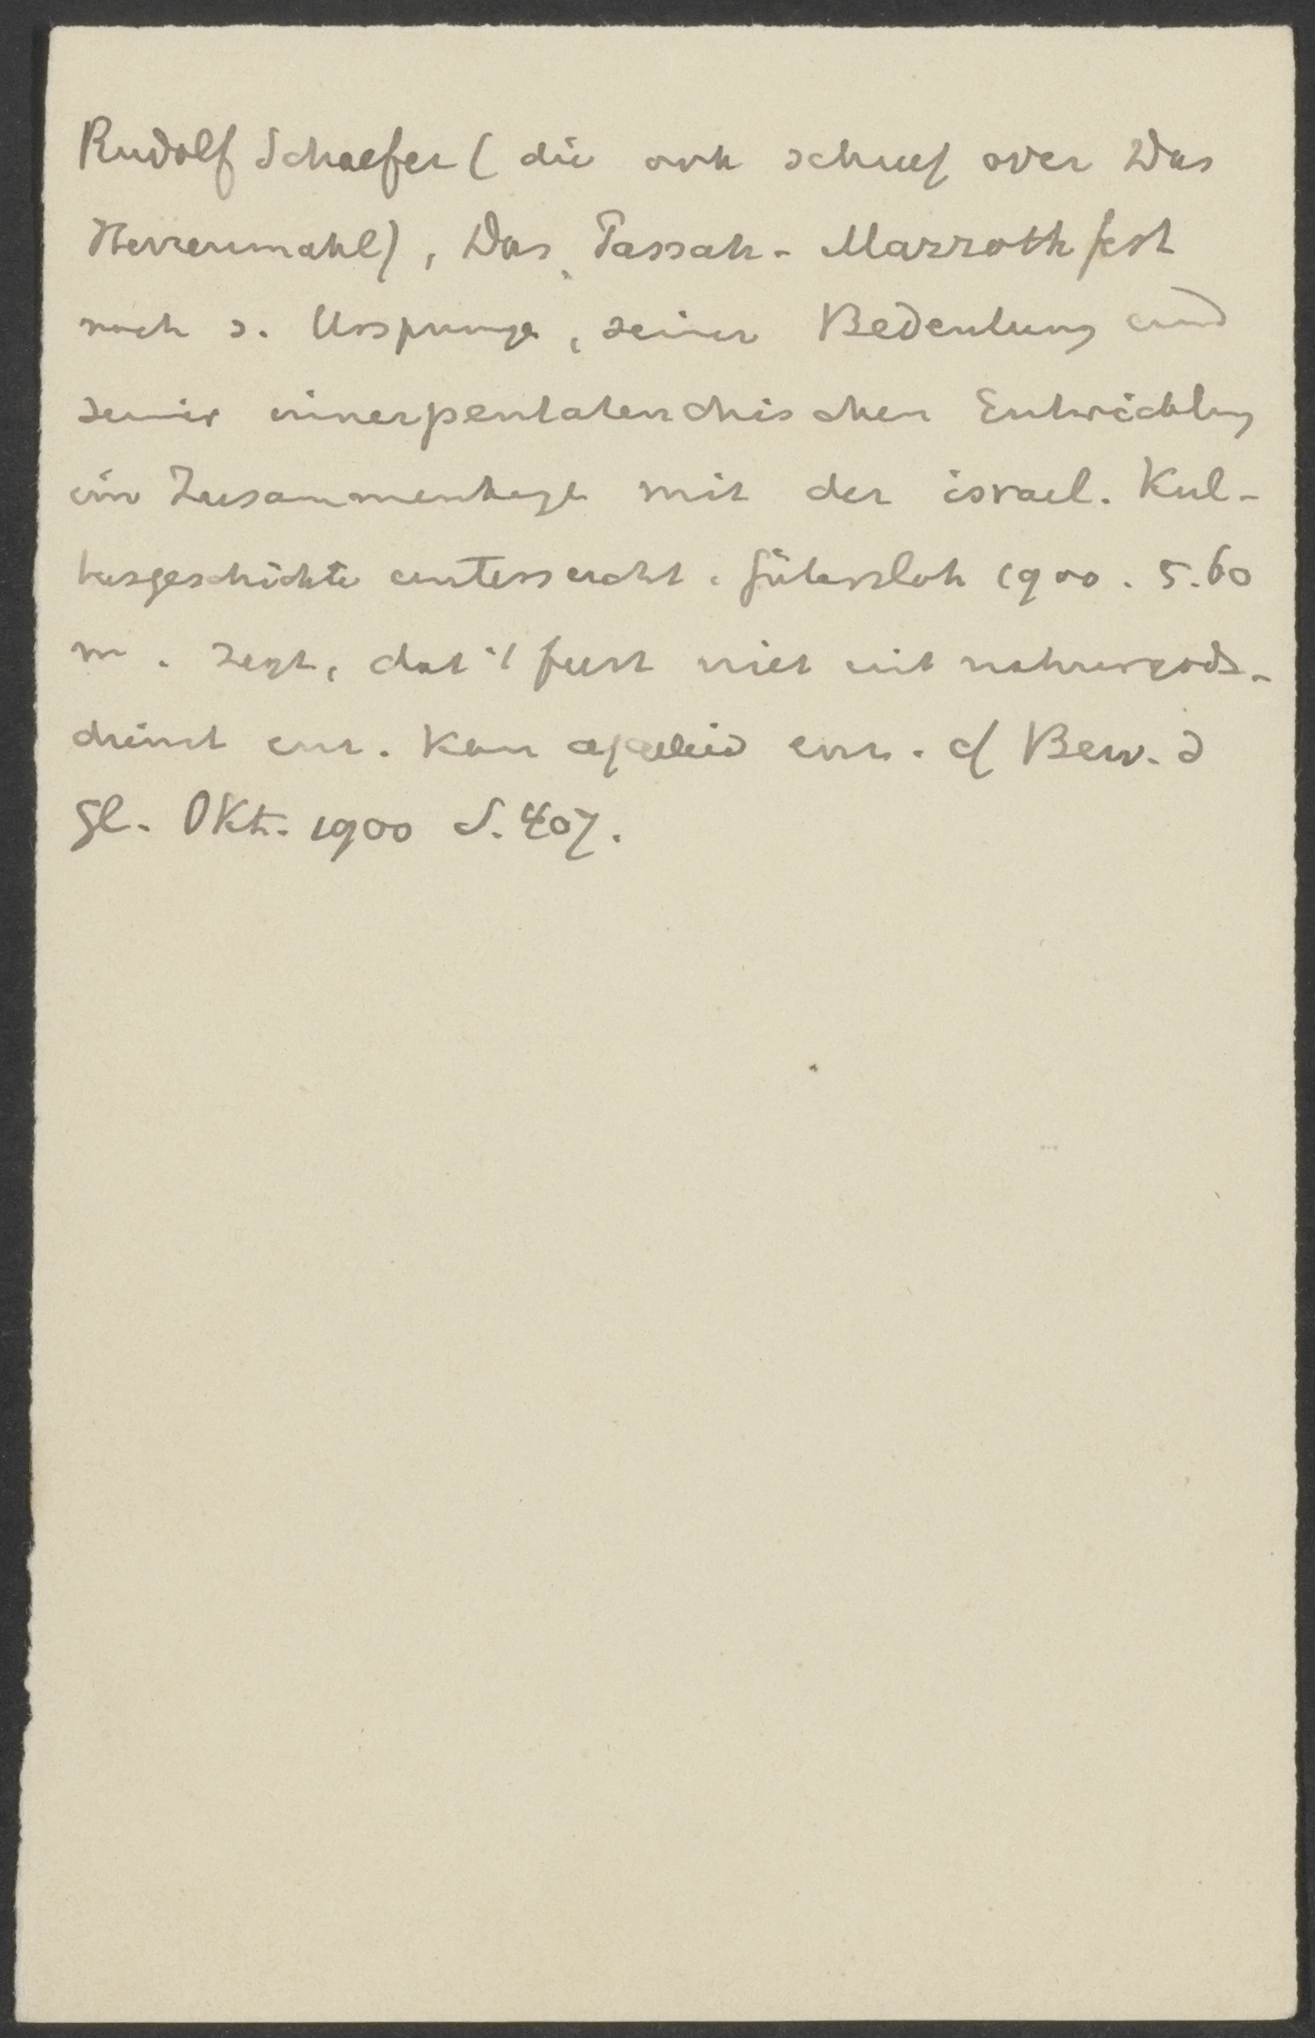 Rudolf Schaefer (die ook schreef over Das
Herrenmahl), Das Passah-Mazzothfest
nach s. Ursprunge, seiner Bedeutung und
seiner innerpentateuchischen Entwicklung
im Zusammenhange mit der israel. Kul-
tusgeschichte untersucht. Gütersloh 1900. 5.60
m. Zegt, dat 't feest niet uit natuurgods-
dienst enz. kan afgeleid enz. cf Bew. d
Gl. Okt. 1900 S. 407.